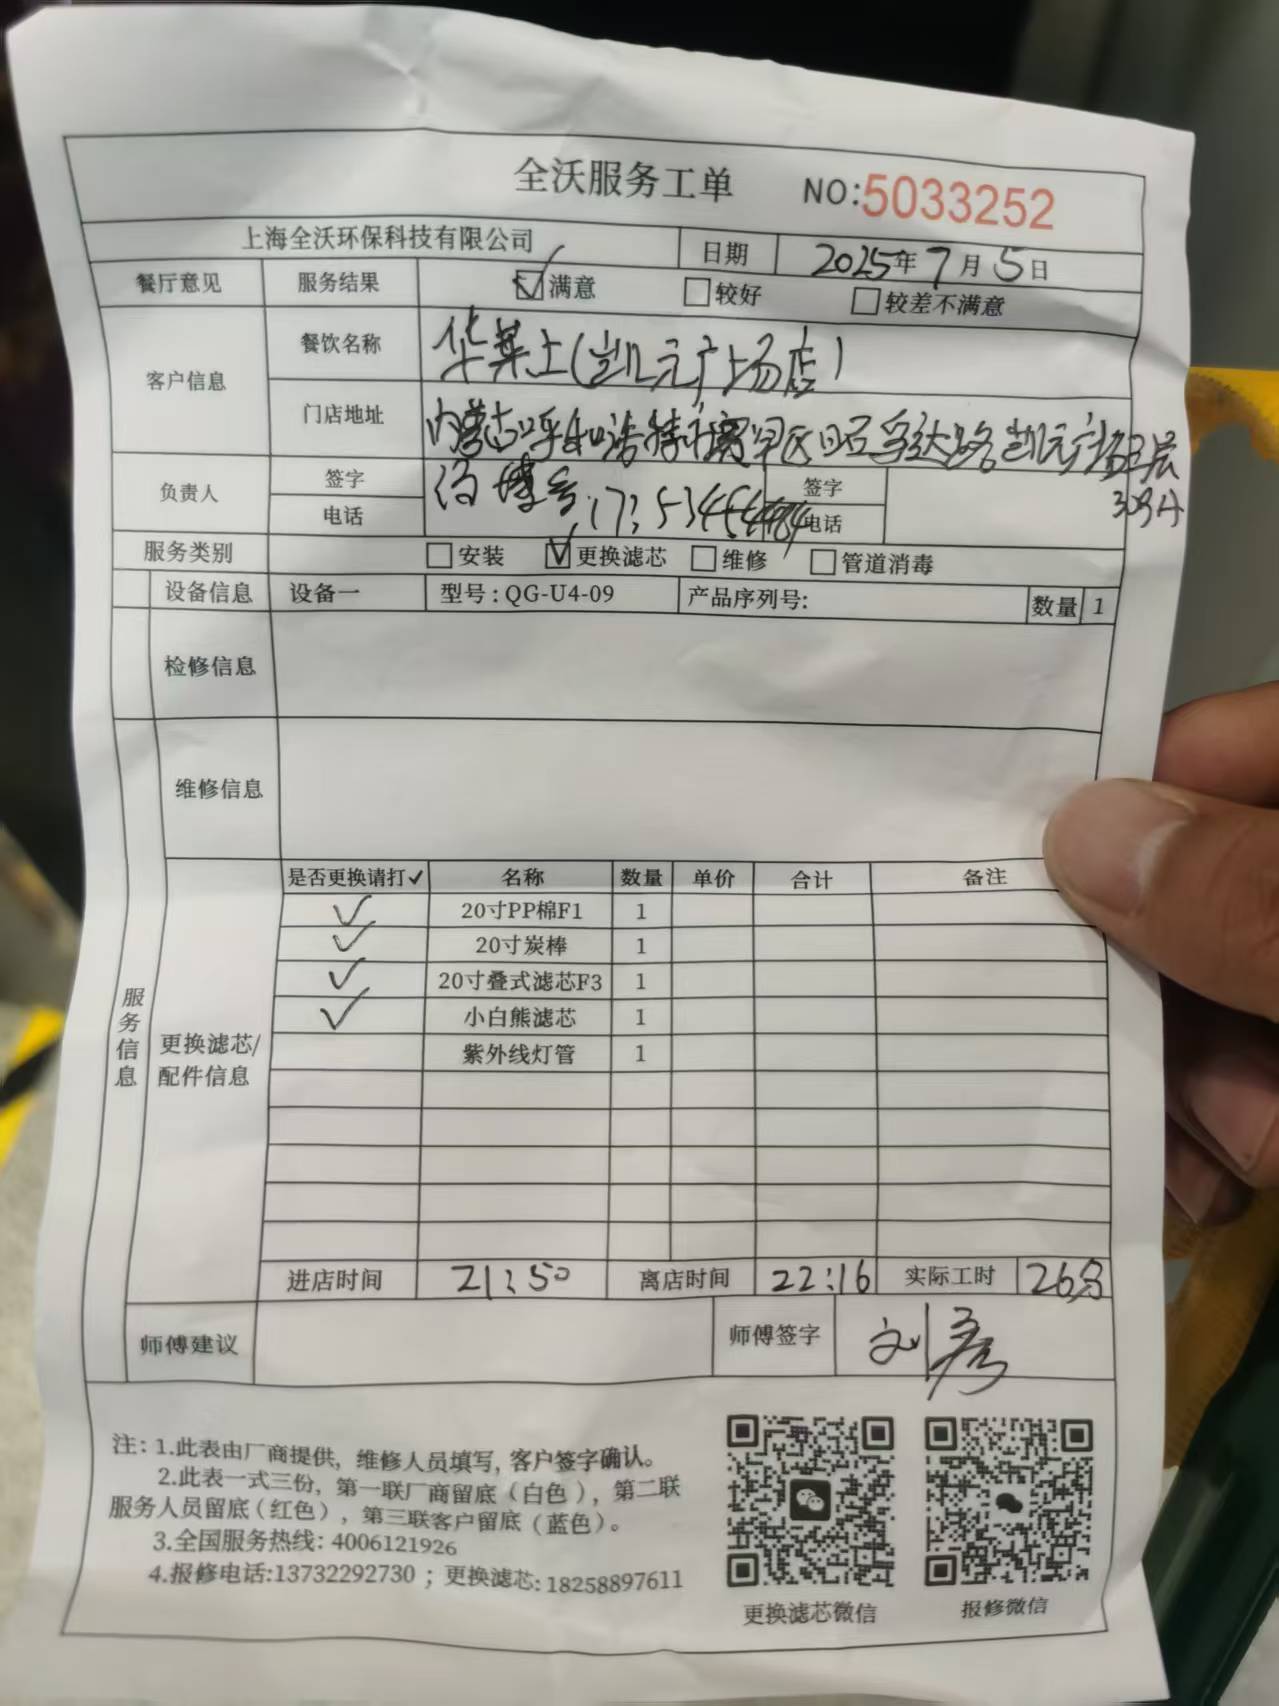 全沃服务工单 NO:5033252
上海全沃环保科技有限公司 日期 2025年7月5日
餐厅意见 服务结果 ☑满意 □较好 □较差不满意
客户信息 餐饮名称 华莱士(凯元广场店)
门店地址 内蒙古呼和浩特市赛罕区昭乌达路凯元广场三层
负责人 签字 签字
电话 电话
服务类别 □安装 ☑更换滤芯 □维修 □管道消毒
设备信息 设备一 型号:QG-U4-09 产品序列号: 数量 1
检修信息
维修信息
服务信息
更换滤芯/配件信息
是否更换请打✓ 名称 数量 单价 合计 备注
✓ 20寸PP棉F1 1
✓ 20寸炭棒 1
✓ 20寸叠式滤芯F3 1
✓ 小白熊滤芯 1
紫外线灯管 1
进店时间 21:50 离店时间 22:16 实际工时 26分
师傅建议 师傅签字 刘彦
注:1.此表由厂商提供,维修人员填写,客户签字确认。
2.此表一式三份,第一联厂商留底(白色),第二联
服务人员留底(红色),第三联客户留底(蓝色)。
3.全国服务热线:4006121926
4.报修电话:13732292730;更换滤芯:18258897611
更换滤芯微信 报修微信